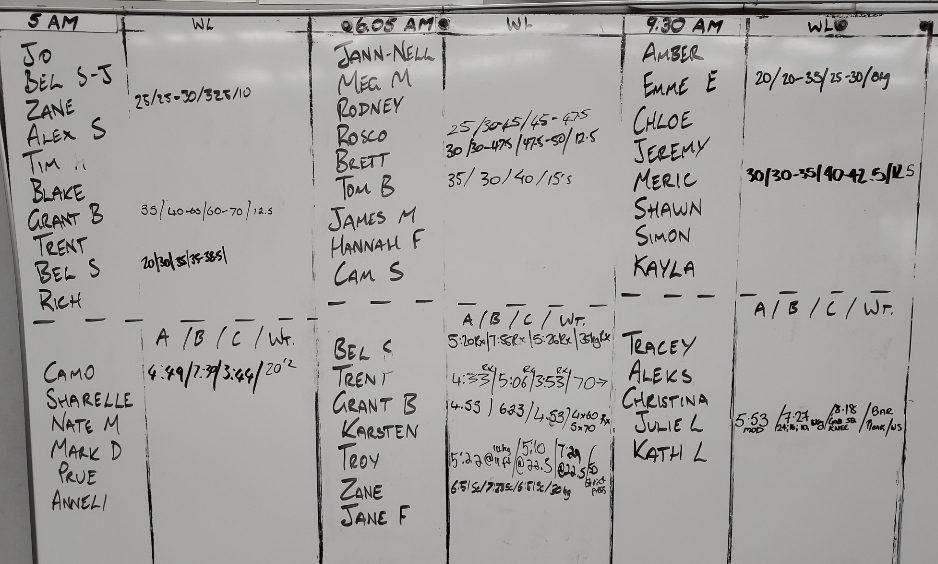 5 AM WL
JO
BEL S-J
ZANE 25/25-30/325/10
ALEX S
TIM
BLAKE
GRANT B 35/40-60/60-70/12.5
TRENT
BEL S 20/30/35/35-38.5/
RICH
A/B/C/WT.
CAMO 4:49/7:39/3:44/20'2
SHARELLE
NATE M
MARK D
PRUE
ANNELI
6.05 AM WL
JANN-NELL
MEG M
RODNEY
ROSCO 25/30-45/45-47.5
BRETT 30/30-47.5/47.5-50/12.5
TOM B 35/30/40/15's
JAMES M
HANNAH F
CAM S
A/B/C/WT.
BEL S 5:20Rx/7:58Rx/5:26Rx/35kgRx
TRENT 4:33/5:06/3:53/70→
GRANT B 4.53/623/4.53/4x60 Rx
KARSTEN 5x70
TROY 5:22@/5:10@22.5/7:29@22.5/50
ZANE 6:51Sc/7:28Sc/6:51Sc/30kg STRICT PRESS
JANE F
9.30 AM WL
AMBER
EMME E 20/20-35/25-30/8kg
CHLOE
JEREMY
MERIC 30/30-35/40-42.5/12.5
SHAWN
SIMON
KAYLA
A/B/C/WT.
TRACEY
ALEKS
CHRISTINA
JULIE L 5:53 MOD/7:27/8:18/BAR
KATH L